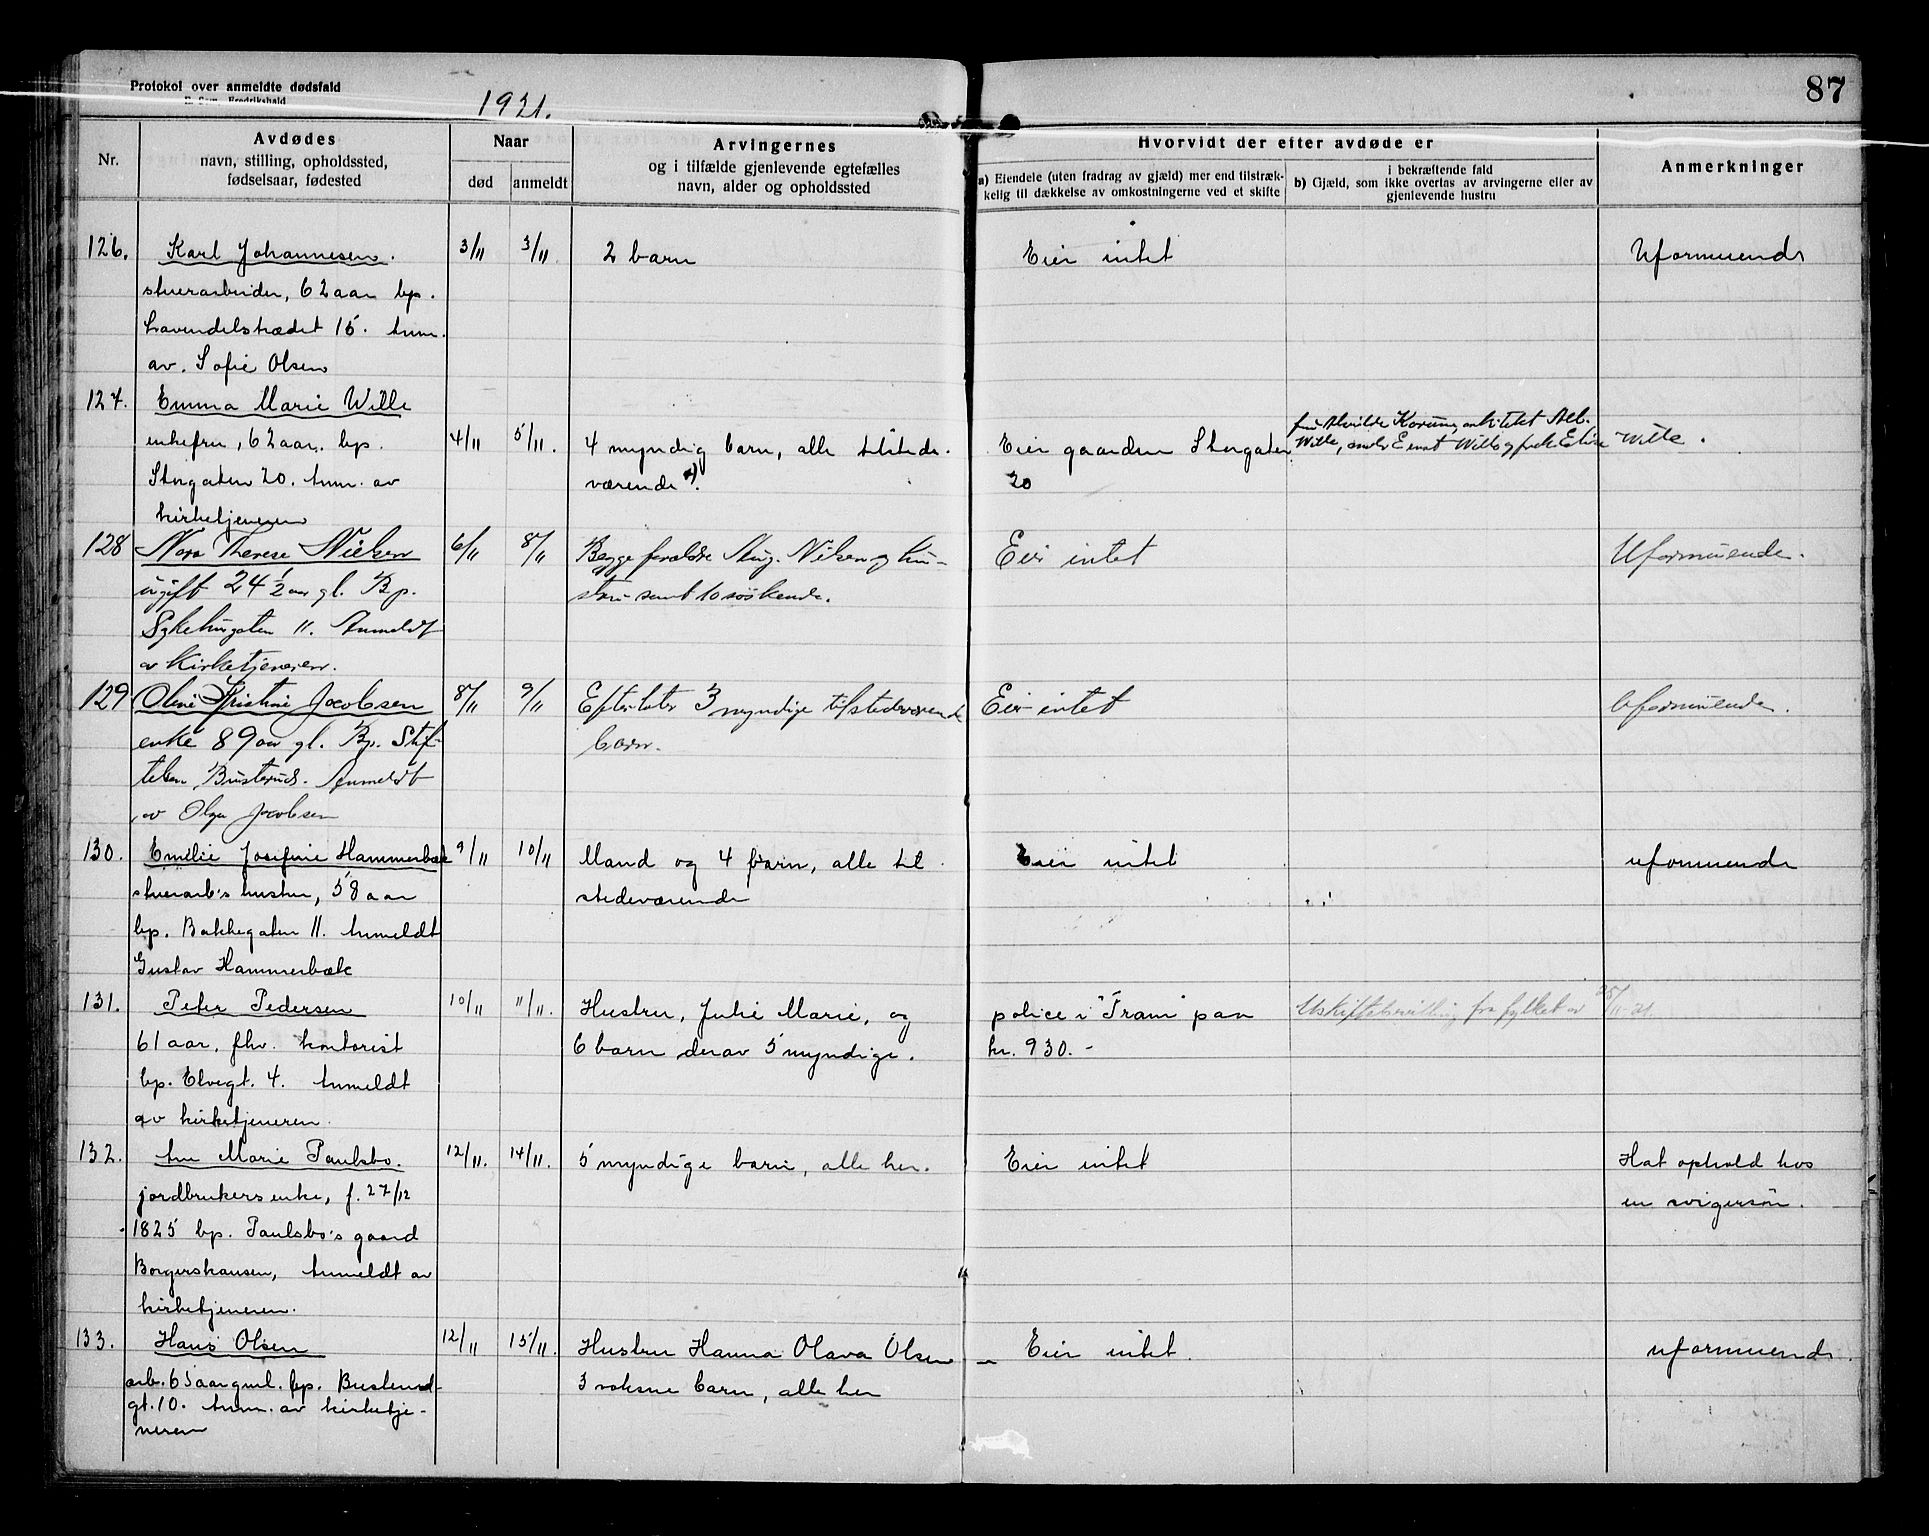 Protokol over anmeldte dødsfald
E. Sem, Fredrikshald
1921.
87
Nr.
Avdødes
navn, stilling, opholdssted,
fødselsaar, fødested
Naar
død
anmeldt
Arvingernes
og i tilfælde gjenlevende egtefælles
navn, alder og opholdssted
Hvorvidt der efter avdøde er
a) Eiendele (uten fradrag av gjæld) mer end tilstræk-
kelig til dækkelse av omkostningerne ved et skifte
i bekræftende fald
b) Gjæld, som ikke overtas av arvingerne eller av
gjenlevende hustru
Anmerkninger
126. Karl Johannesen. 3/11 3/11 2 barn Eier intet Uformuende
stuerarbeider, 62 aar bp.
Lavendelstrædet 15. Anm.
av. Sofie Olsen
127. Emma Marie Wille
enkefru, 62 aar. bp. 4/11 5/11. 4 myndig barn, alle tilstede- Eier gaarden Storgaten
Storgaten 20. Anm. av værende x). 20
kirketjeneren
Wille, Ernst Wille og frøk Elise Wille.
128 Nora Therese Nielsen 6/11 8/11 Begge forældre Aug. Nilsen og hu- Eier intet Uformuende.
ugift 24 1/2 aar gl. Bp. stru samt 10 søskende.
Sykehusgaten 11. Anmeldt
av Kirketjeneren.
129 Oline Kristine Jacobsen 8/11 9/11 Efterlater 3 myndige tilstedeværende Eier intet Uformuende.
enke 89 aar gl. Bp. Stif- barn.
telsen Busterud. Anmeldt
av Olga Jacobsen
130. Emilie Josefine Hammerbæk 9/11 10/11 Mand og 4 barn, alle til Eier intet uformuende
stuerarb's hustru, 58 aar stedeværende
bp. Bakkegaten 11. Anmeldt
Gustav Hammerbæk
131. Peter Pedersen 10/11 11/11. Hustru, Julie Marie, og police i "Tram" paa Uskiftebevilling fra fylket av 25/11-21.
61 aar, fhv. kontorist 6 barn derav 5 myndige. kr. 930.-
bp. Elvegt. 4. Anmeldt
av kirketjeneren.
132. Ane Marie Paulsbo. 12/11. 14/11. 5 myndige barn, alle her. Eier intet Hat ophold hos
jordbrukers enke, f. 27/12 en svigersøn.
1825 bp. Paulsbo's gaard
Borgerskansen, Anmeldt av
kirketjeneren.
133. Hans Olsen 12/11 15/11. Hustru Hanna Olava Olsen - Eier intet. uformuende.
arb. 65 aar gml. bp. Busterud- 3 voksne barn, alle her
gt. 10. Anm. av kirketje-
neren